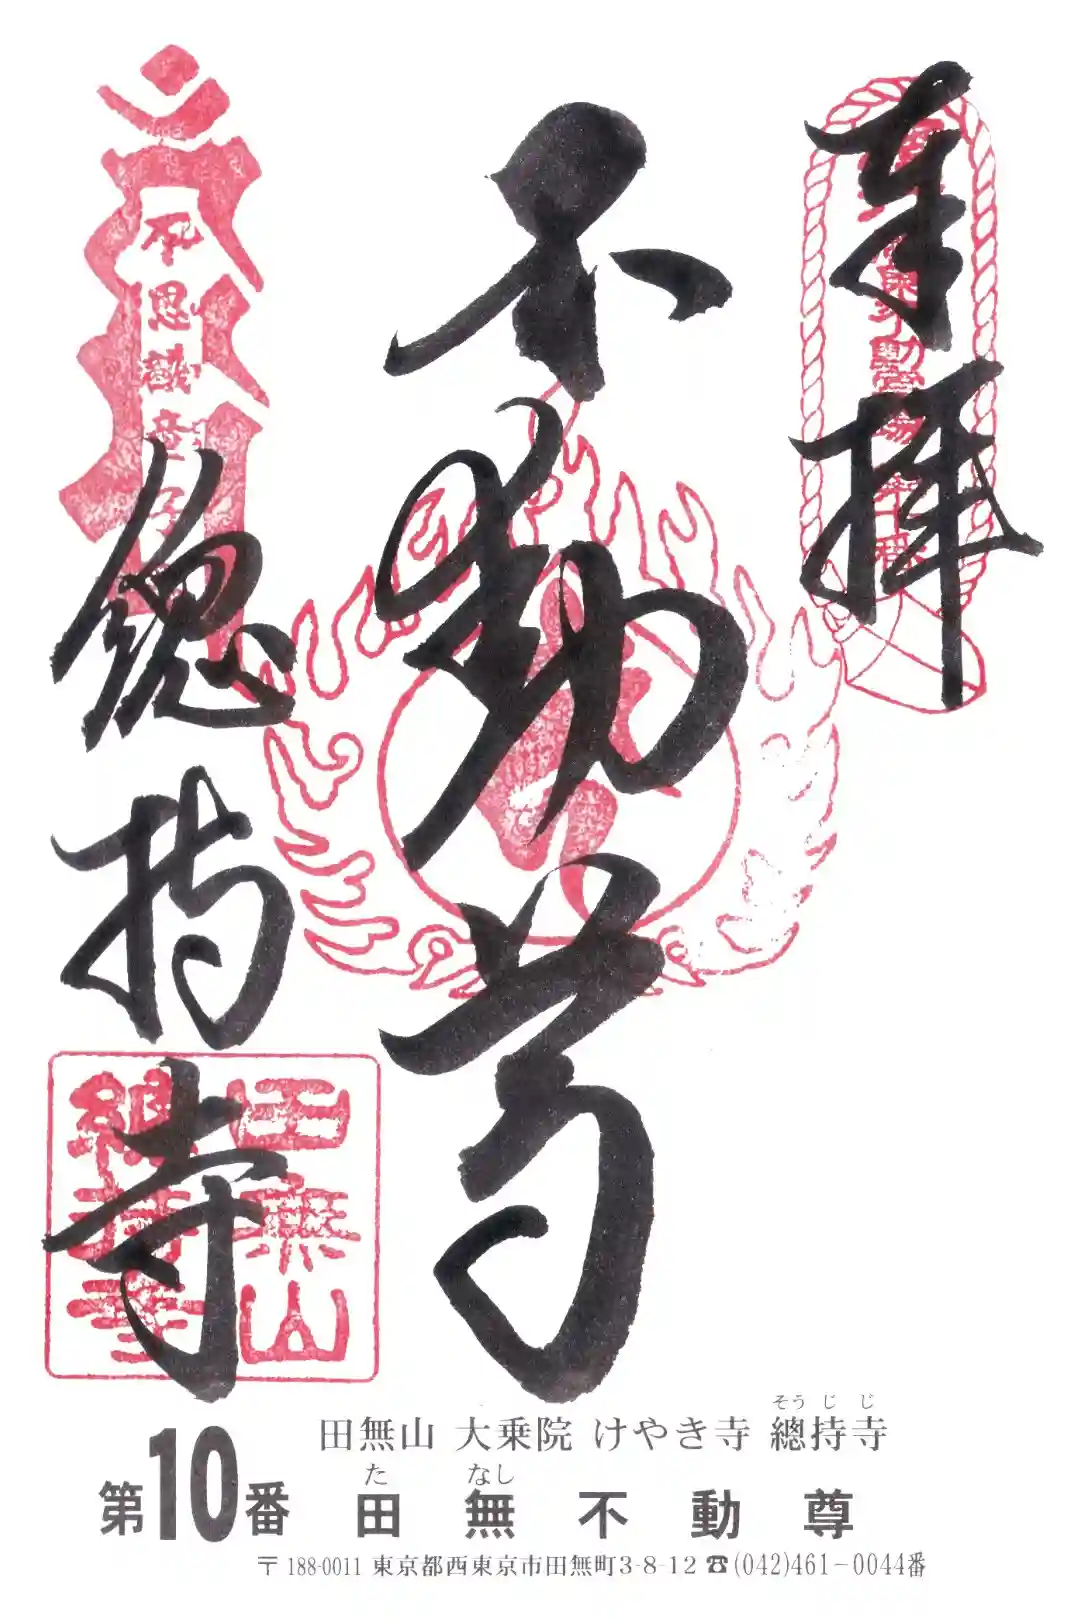 奉拝
不動尊
不思議童子
總持寺
田無山
總持寺
そうじじ
田無山 大乗院 けやき寺 總持寺
た なし
第10番 田無不動尊
〒188-0011 東京都西東京市田無町3-8-12 ☎(042)461-0044番